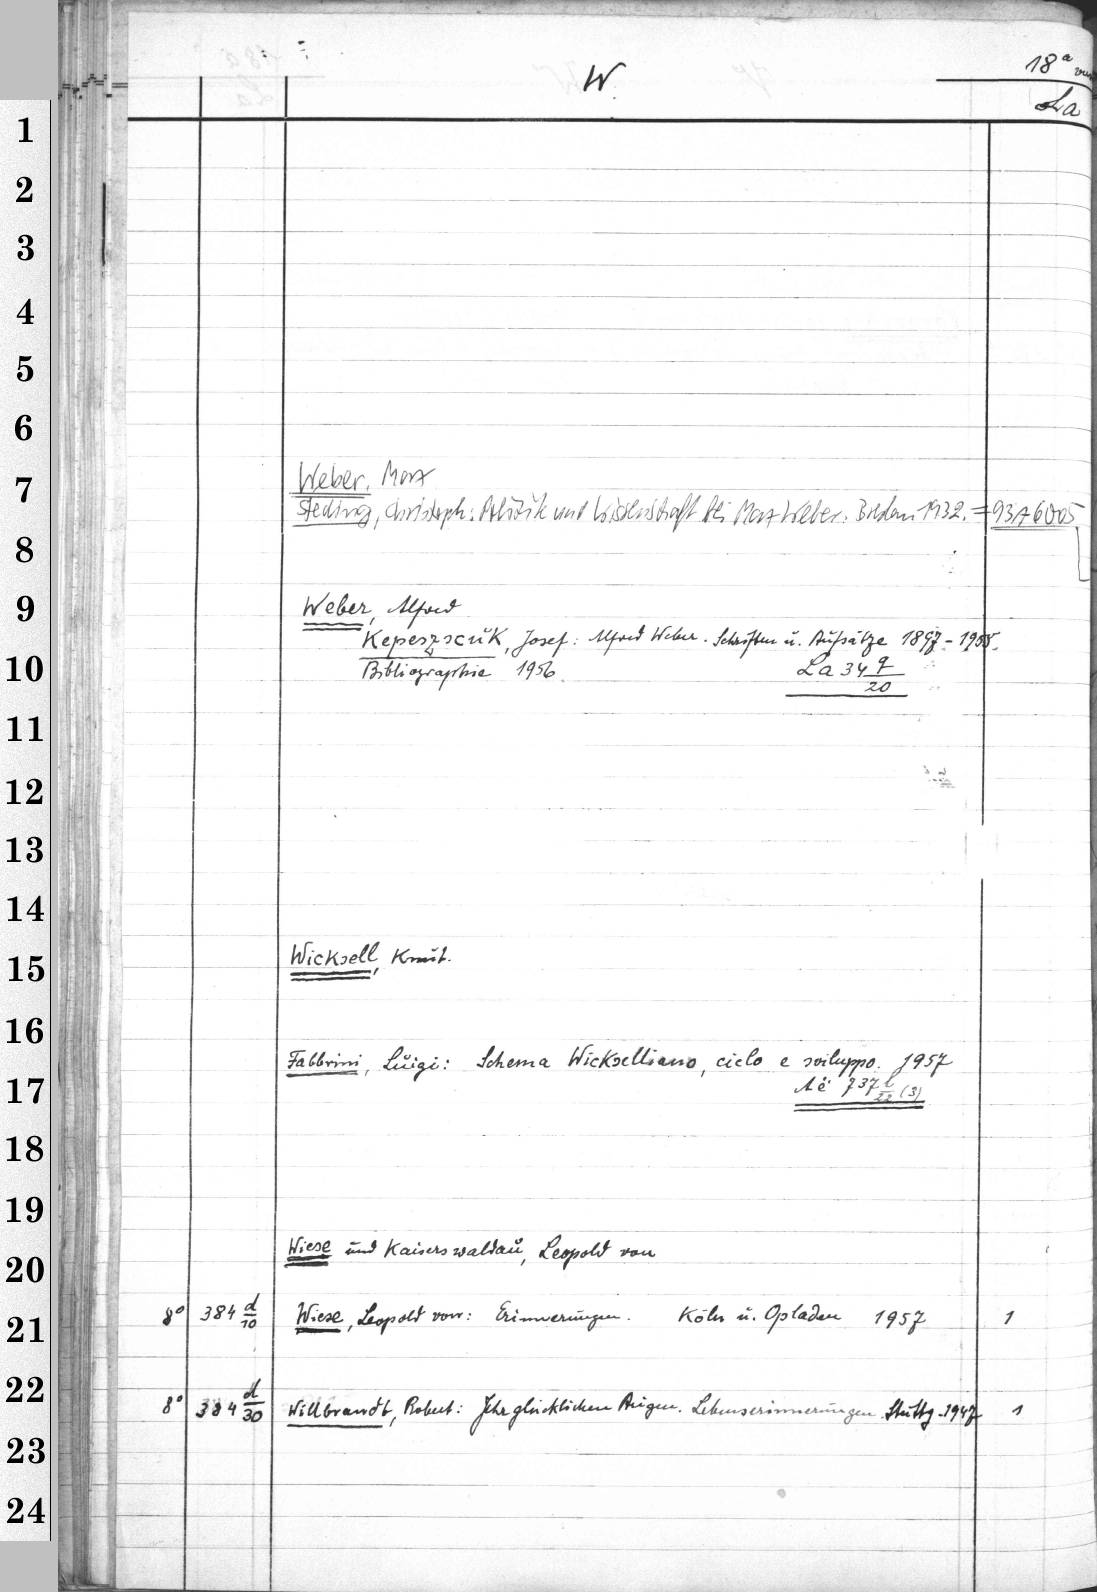 W.
18a
La
Weber, Max
Steding, Christoph: Politik und Wissenschaft bei Max Weber. Breslau 1932. = 93 A 6005
Weber, Alfred
Kepeszczuk, Josef: Alfred Weber. Schriften u. Aufsätze 1897-1955.
Bibliographie 1956. La 34 q/20
Wicksell, Knut.
Fabbrini, Luigi: Schema Wickselliano, ciclo e sviluppo. 1957
737 l/22 (3)
Wiese und Kaiserswaldau, Leopold von
8° 384 d/10 Wiese, Leopold von: Erinnerungen. Köln u. Opladen 1957 1
8° 384 d/30 Willbrandt, Robert: Ihr glücklichen Augen. Lebenserinnerungen. Stuttg. 1947 1
1
2
3
4
5
6
7
8
9
10
11
12
13
14
15
16
17
18
19
20
21
22
23
24